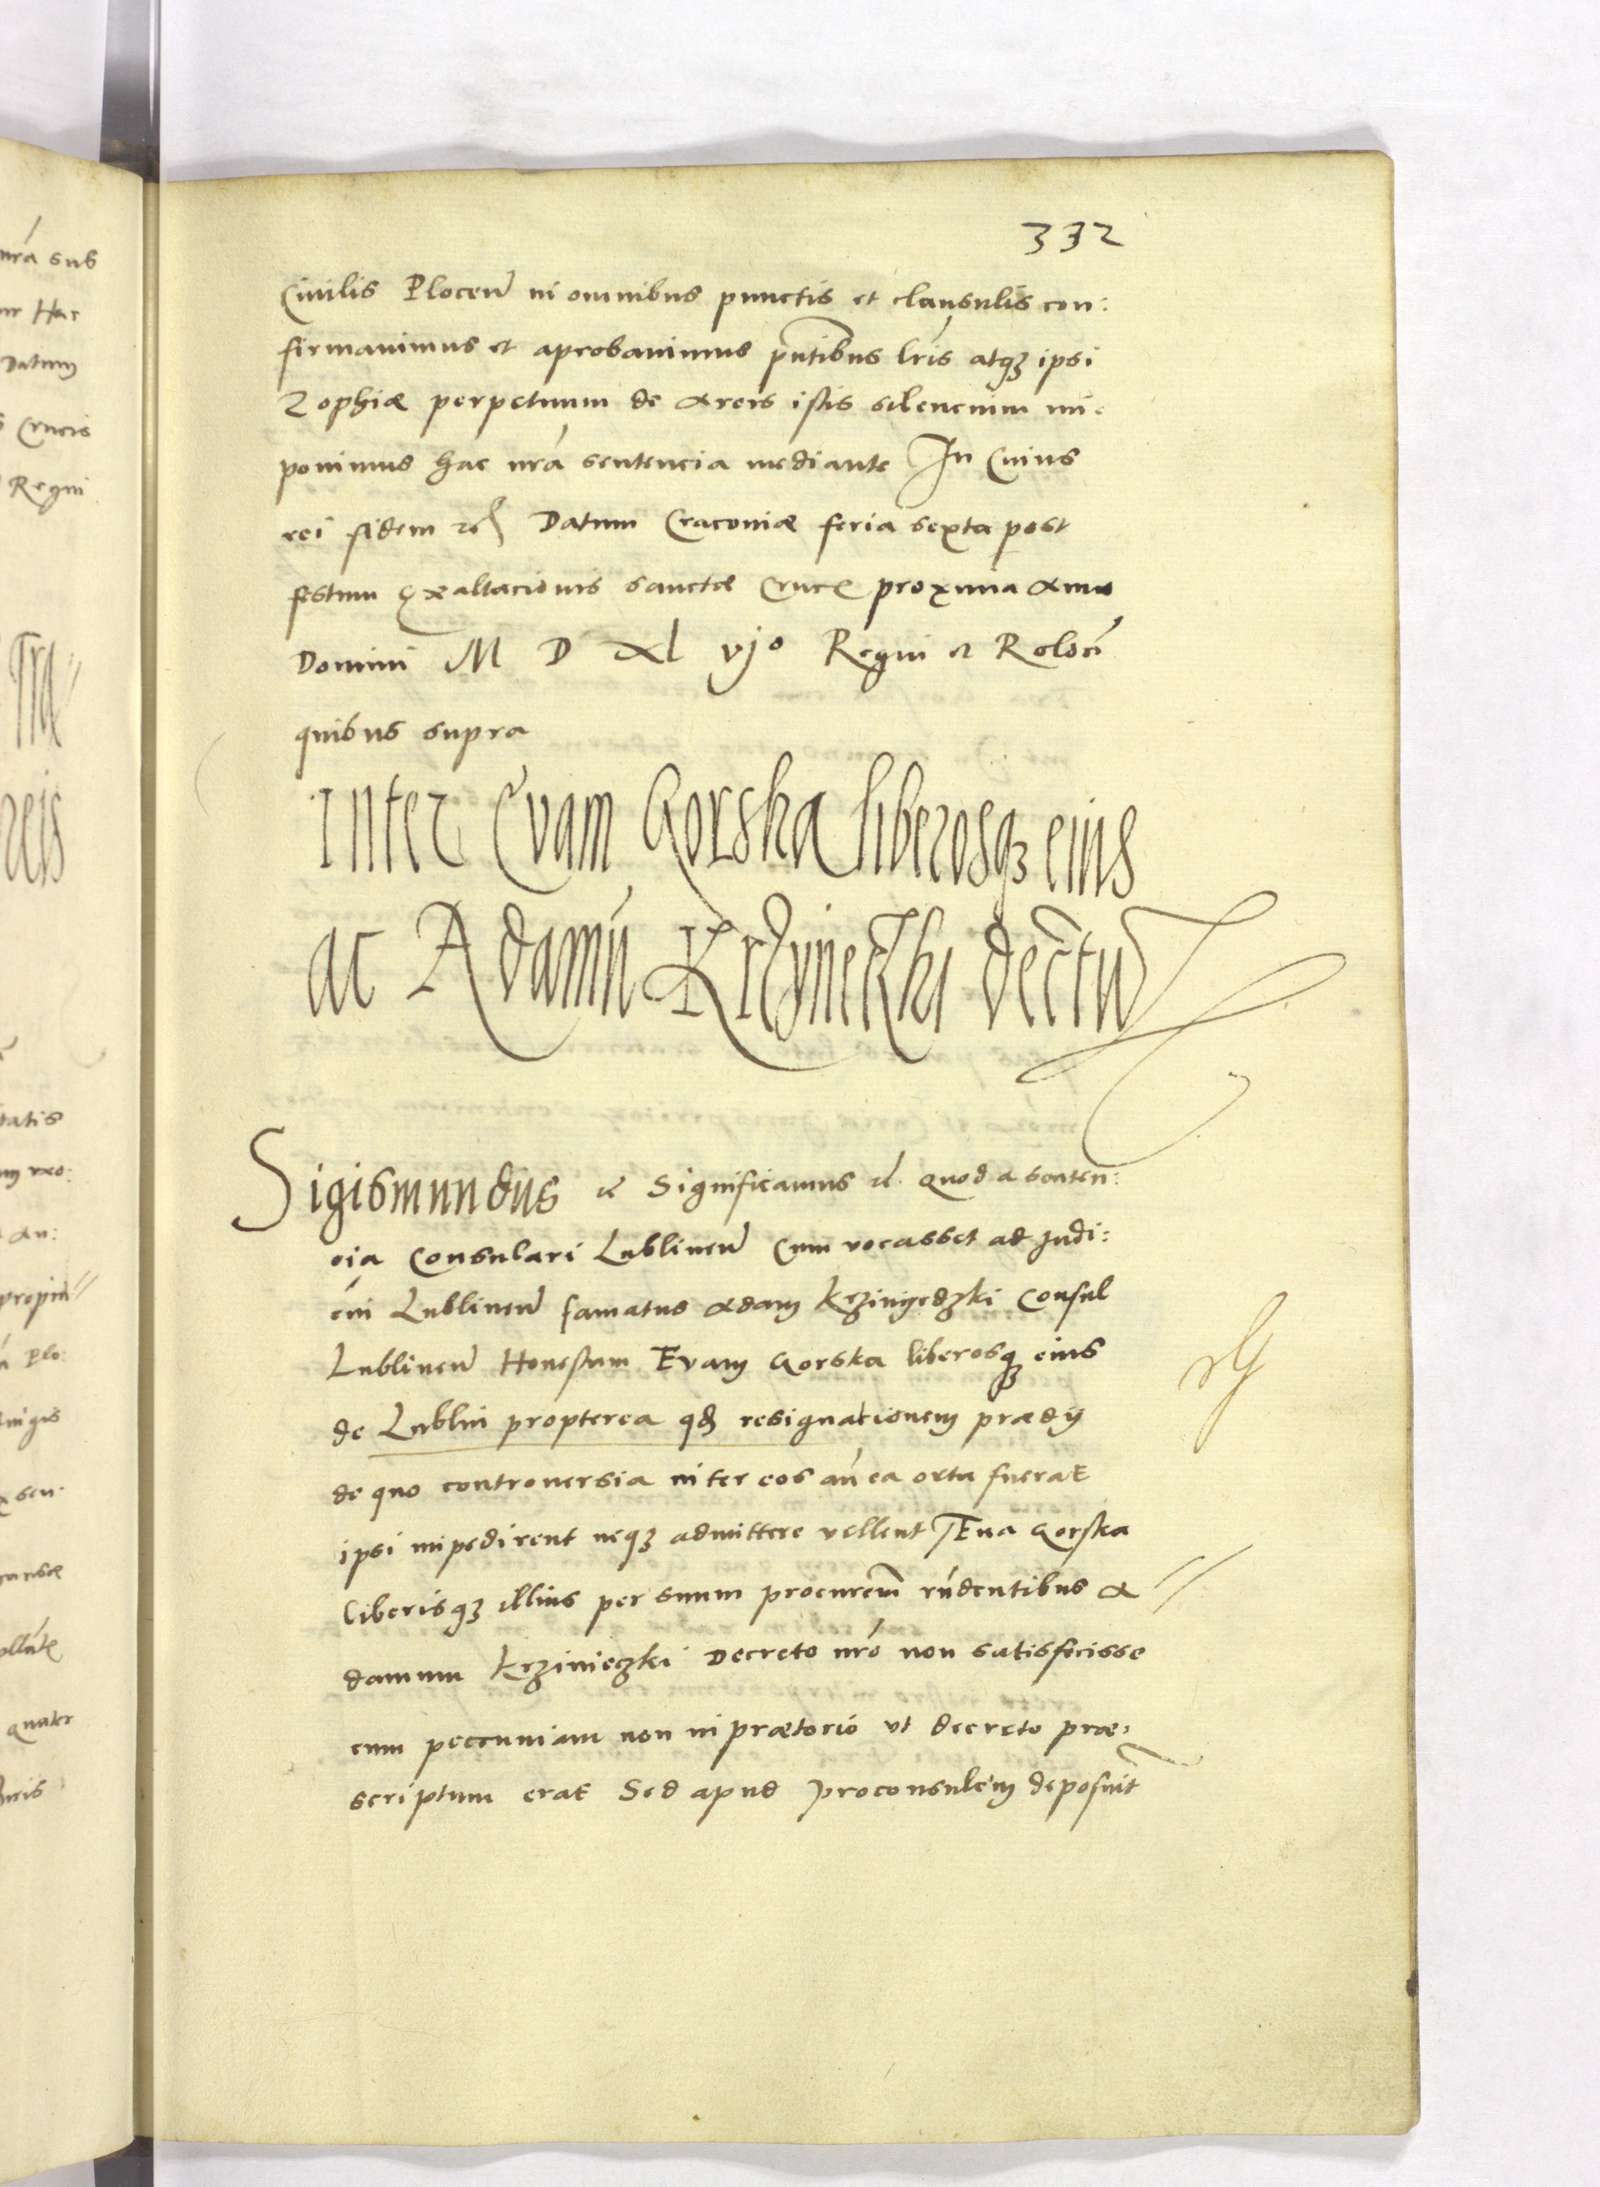 332
Civilis Plocen̄ in omnibus punctis et clausulis con:
firmavimus et aprobavimus pñtibus lr̃is atqꝫ ipsi
Zophiæ perpetuum de areis istis silencium im:
ponimus hac nrã sentencia mediante In Cuius
rei fidem etc Datum Cracoviæ feria sexta post
festum Exaltacionis sanctæ Crucꝭ proxima Anno
Domini M D Xl vjº Regni et Relocñ
quibus supra
Inter Evam Gorska liberosqꝫ eius
ac Adamũ Krzyneczki decr̃tũ
Sigismundus etc Significamus etc quod a senten:
cia Consulari Lublinen̄ Cum vocasset ad Judi:
ciũ Lublinen̄ famatus Adam Krziniedzki Consul
Lublinen̄ Honestam Evam Gorska liberosqꝫ eius
de Lublin propterea qđ resignationem prædij
de quo controversia inter eos añ ea orta fuerat
ipsi impedirent neqꝫ admittere vellent Eua Gorska
liberisqꝫ illius per suum procurem̃ rñdentibus A
damum Krzinieczki Decreto nrõ non satisfecisse
cum peccuniam non in prætorio vt decreto præ:
scriptum erat Sed apud proconsulem deposuit
nrã sub
Hac
Datum
Crucis
Regni